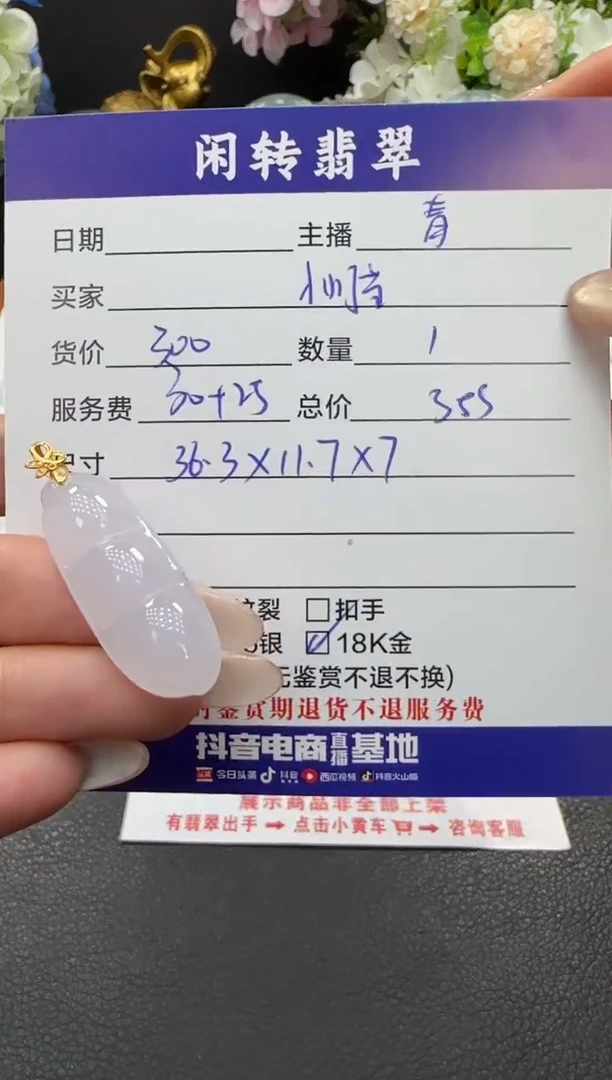 闲转翡翠
日期 主播 青
买家
货价 300 数量 1
服务费 30+25 总价 355
寸 36.3×11.7×7
裂 □扣手
银 ☑18K金
无鉴赏不退不换)
鉴赏期退货不退服务费
抖音电商直播基地
头条 今日头条 抖音 西瓜视频 抖音火山版
展示商品非全部上架
有翡翠出手→点击小黄车→咨询客服